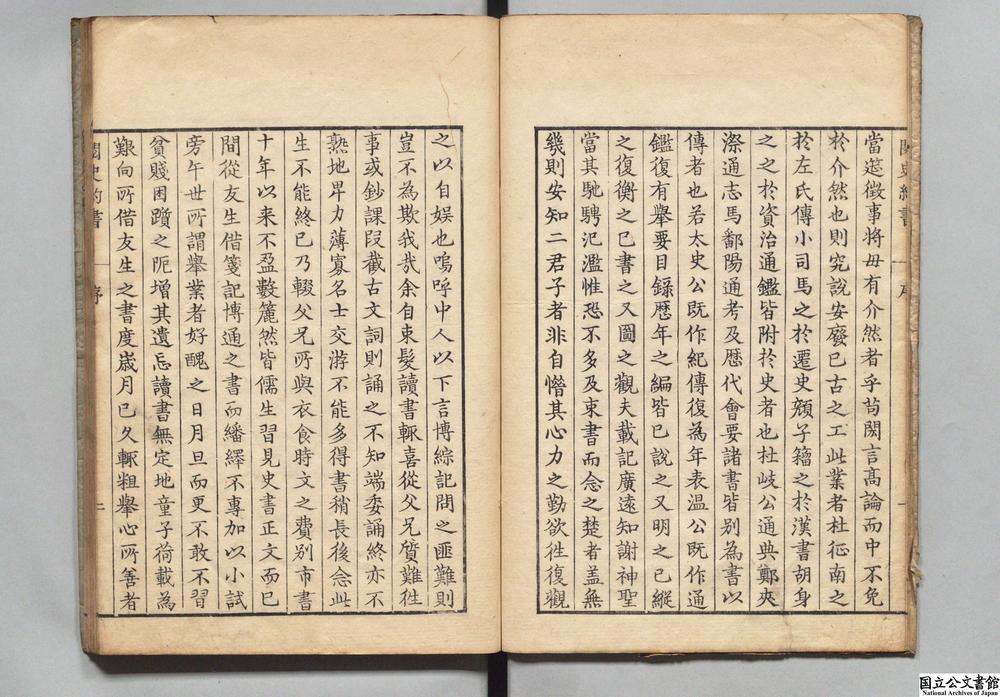 閱史約書 序
當遊徵事將毋有介然者乎苟閎言高論而中不免
於介然也則究說安廢已古之工此業者杜征南之
於左氏傳小司馬之於遷史顏子籀之於漢書胡身
之之於資治通鑑皆附於史者也杜岐公通典鄭夾
漈通志馬鄱陽通考及歷代會要諸書皆別為書以
傳者也若太史公既作紀傳復為年表溫公既作通
鑑復有舉要目錄歷年之編皆已說之又明之已縱
之復衡之已書之又圖之觀夫載記廣遠知謝神聖
當其馳騁汜濫惟恐不多及束書而念之楚者盖無
幾則安知二君子者非自憯其心力之勤欲徃復觀
之以自娛也嗚呼中人以下言博綜記問之匪難則
豈不為欺我㢤余自束髮讀書輒喜從父兄質難徃
事或鈔課叚截古文詞則誦之不知端委誦終亦不
熟地卑力薄寡名士交游不能多得書稍長後念此
生不能終已乃輟父兄所與衣食時文之費別市書
十年以来不盈數簏然皆儒生習見史書正文而已
間從友生借箋記博通之書而繙繹不專加以小試
旁午世所謂舉業者好醜之日月旦而更不敢不習
貧賤困躓之阨增其遺忘讀書無定地童子荷載為
艱向所借友生之書度嵗月已久輒粗舉心所善者
閱史約書 序 二
国立公文書館
National Archives of Japan